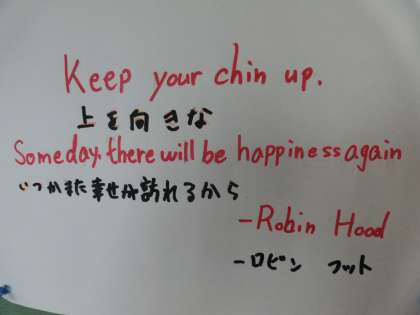 Keep your chin up.
上を向きな
Someday, there will be happiness again
いつかまた幸せが訪れるから
-Robin Hood
-ロビン フット